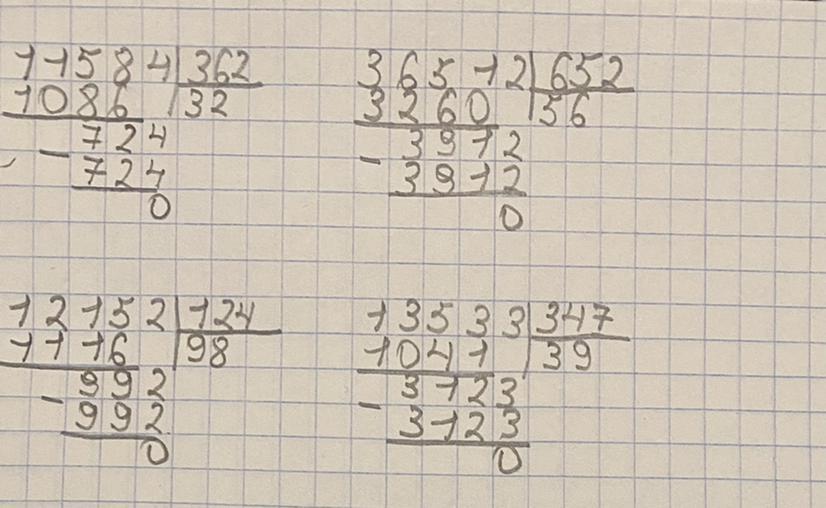 11584 362
1086 32
- 724
724
0
36512 652
3260 56
- 3912
3912
0
12152 124
1116 98
- 992
992
0
13533 347
1041 39
- 3123
3123
0